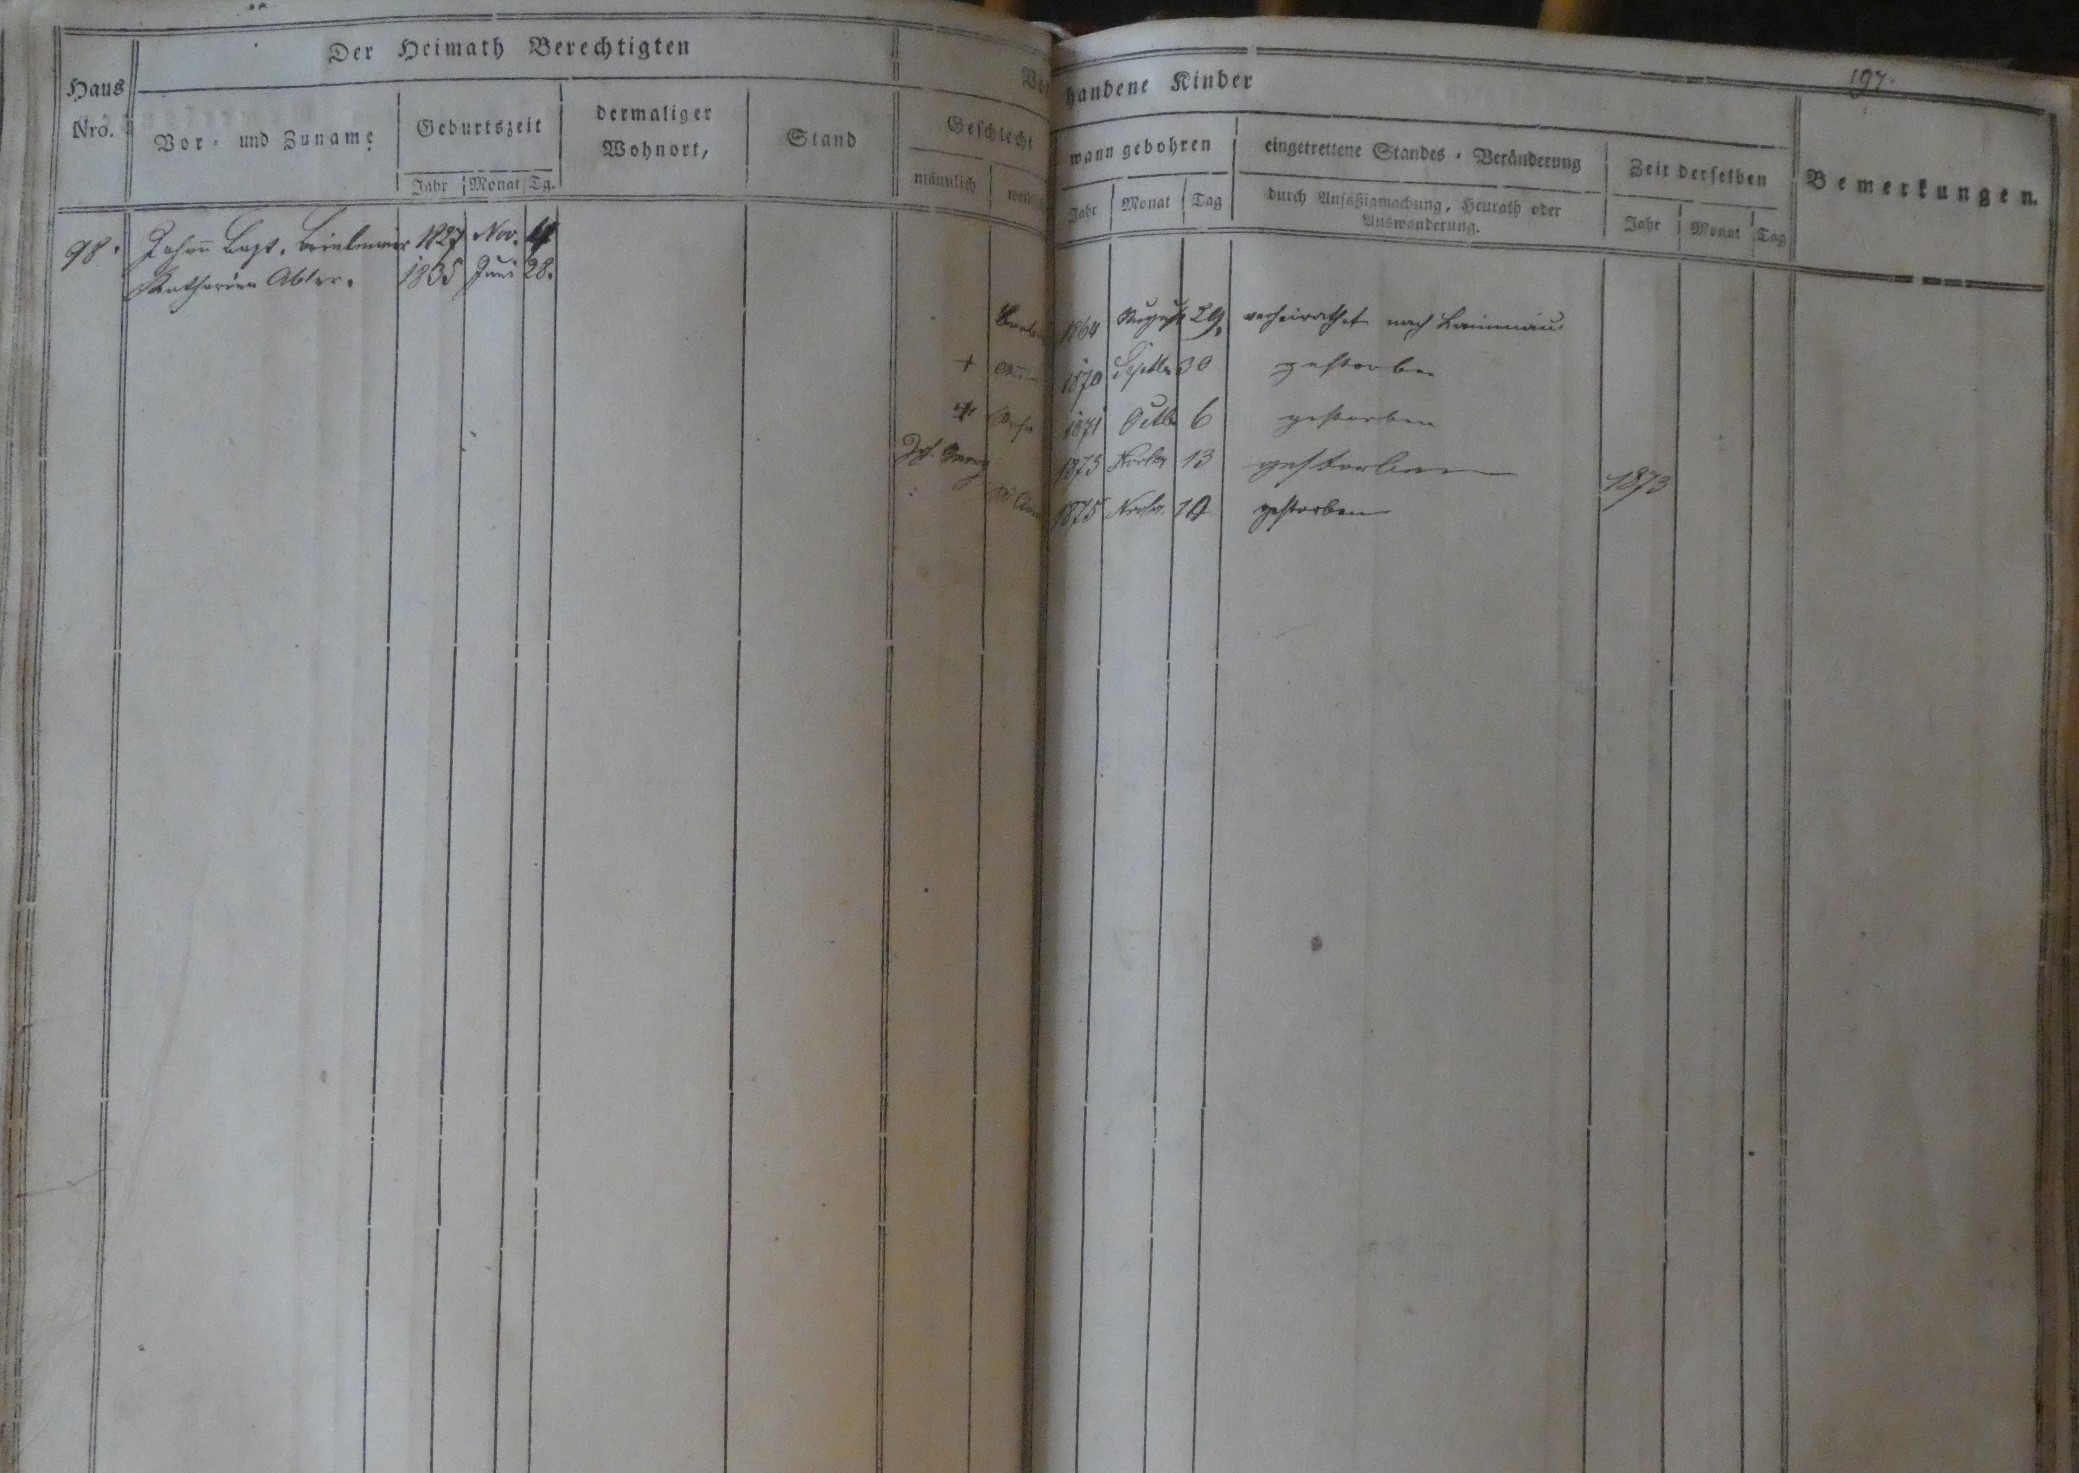 197.
Der Heimath Berechtigten
handene Kinder
Haus
Nro.
Vor- und Zuname
Geburtszeit
Jahr Monat Tg.
dermaliger
Wohnort,
Stand
Geschlecht
männlich
wann gebohren
Jahr Monat Tag
eingetrettene Standes-Veränderung
durch Ansäßigmachung, Heurath oder
Auswanderung.
Zeit derselben
Jahr Monat Tag
Bemerkungen.
98. Johann Bapt. 1827 Nov. 4
Katharina Abler. 1835 Juni 28.
1864 August 29. verheirathet nach
+ 1870 Septbr 30 gestorben
+ 1871 Octb 6 gestorben
Joh. Georg 1873 Novbr 13 gestorben 1873
1875 Novbr. gestorben